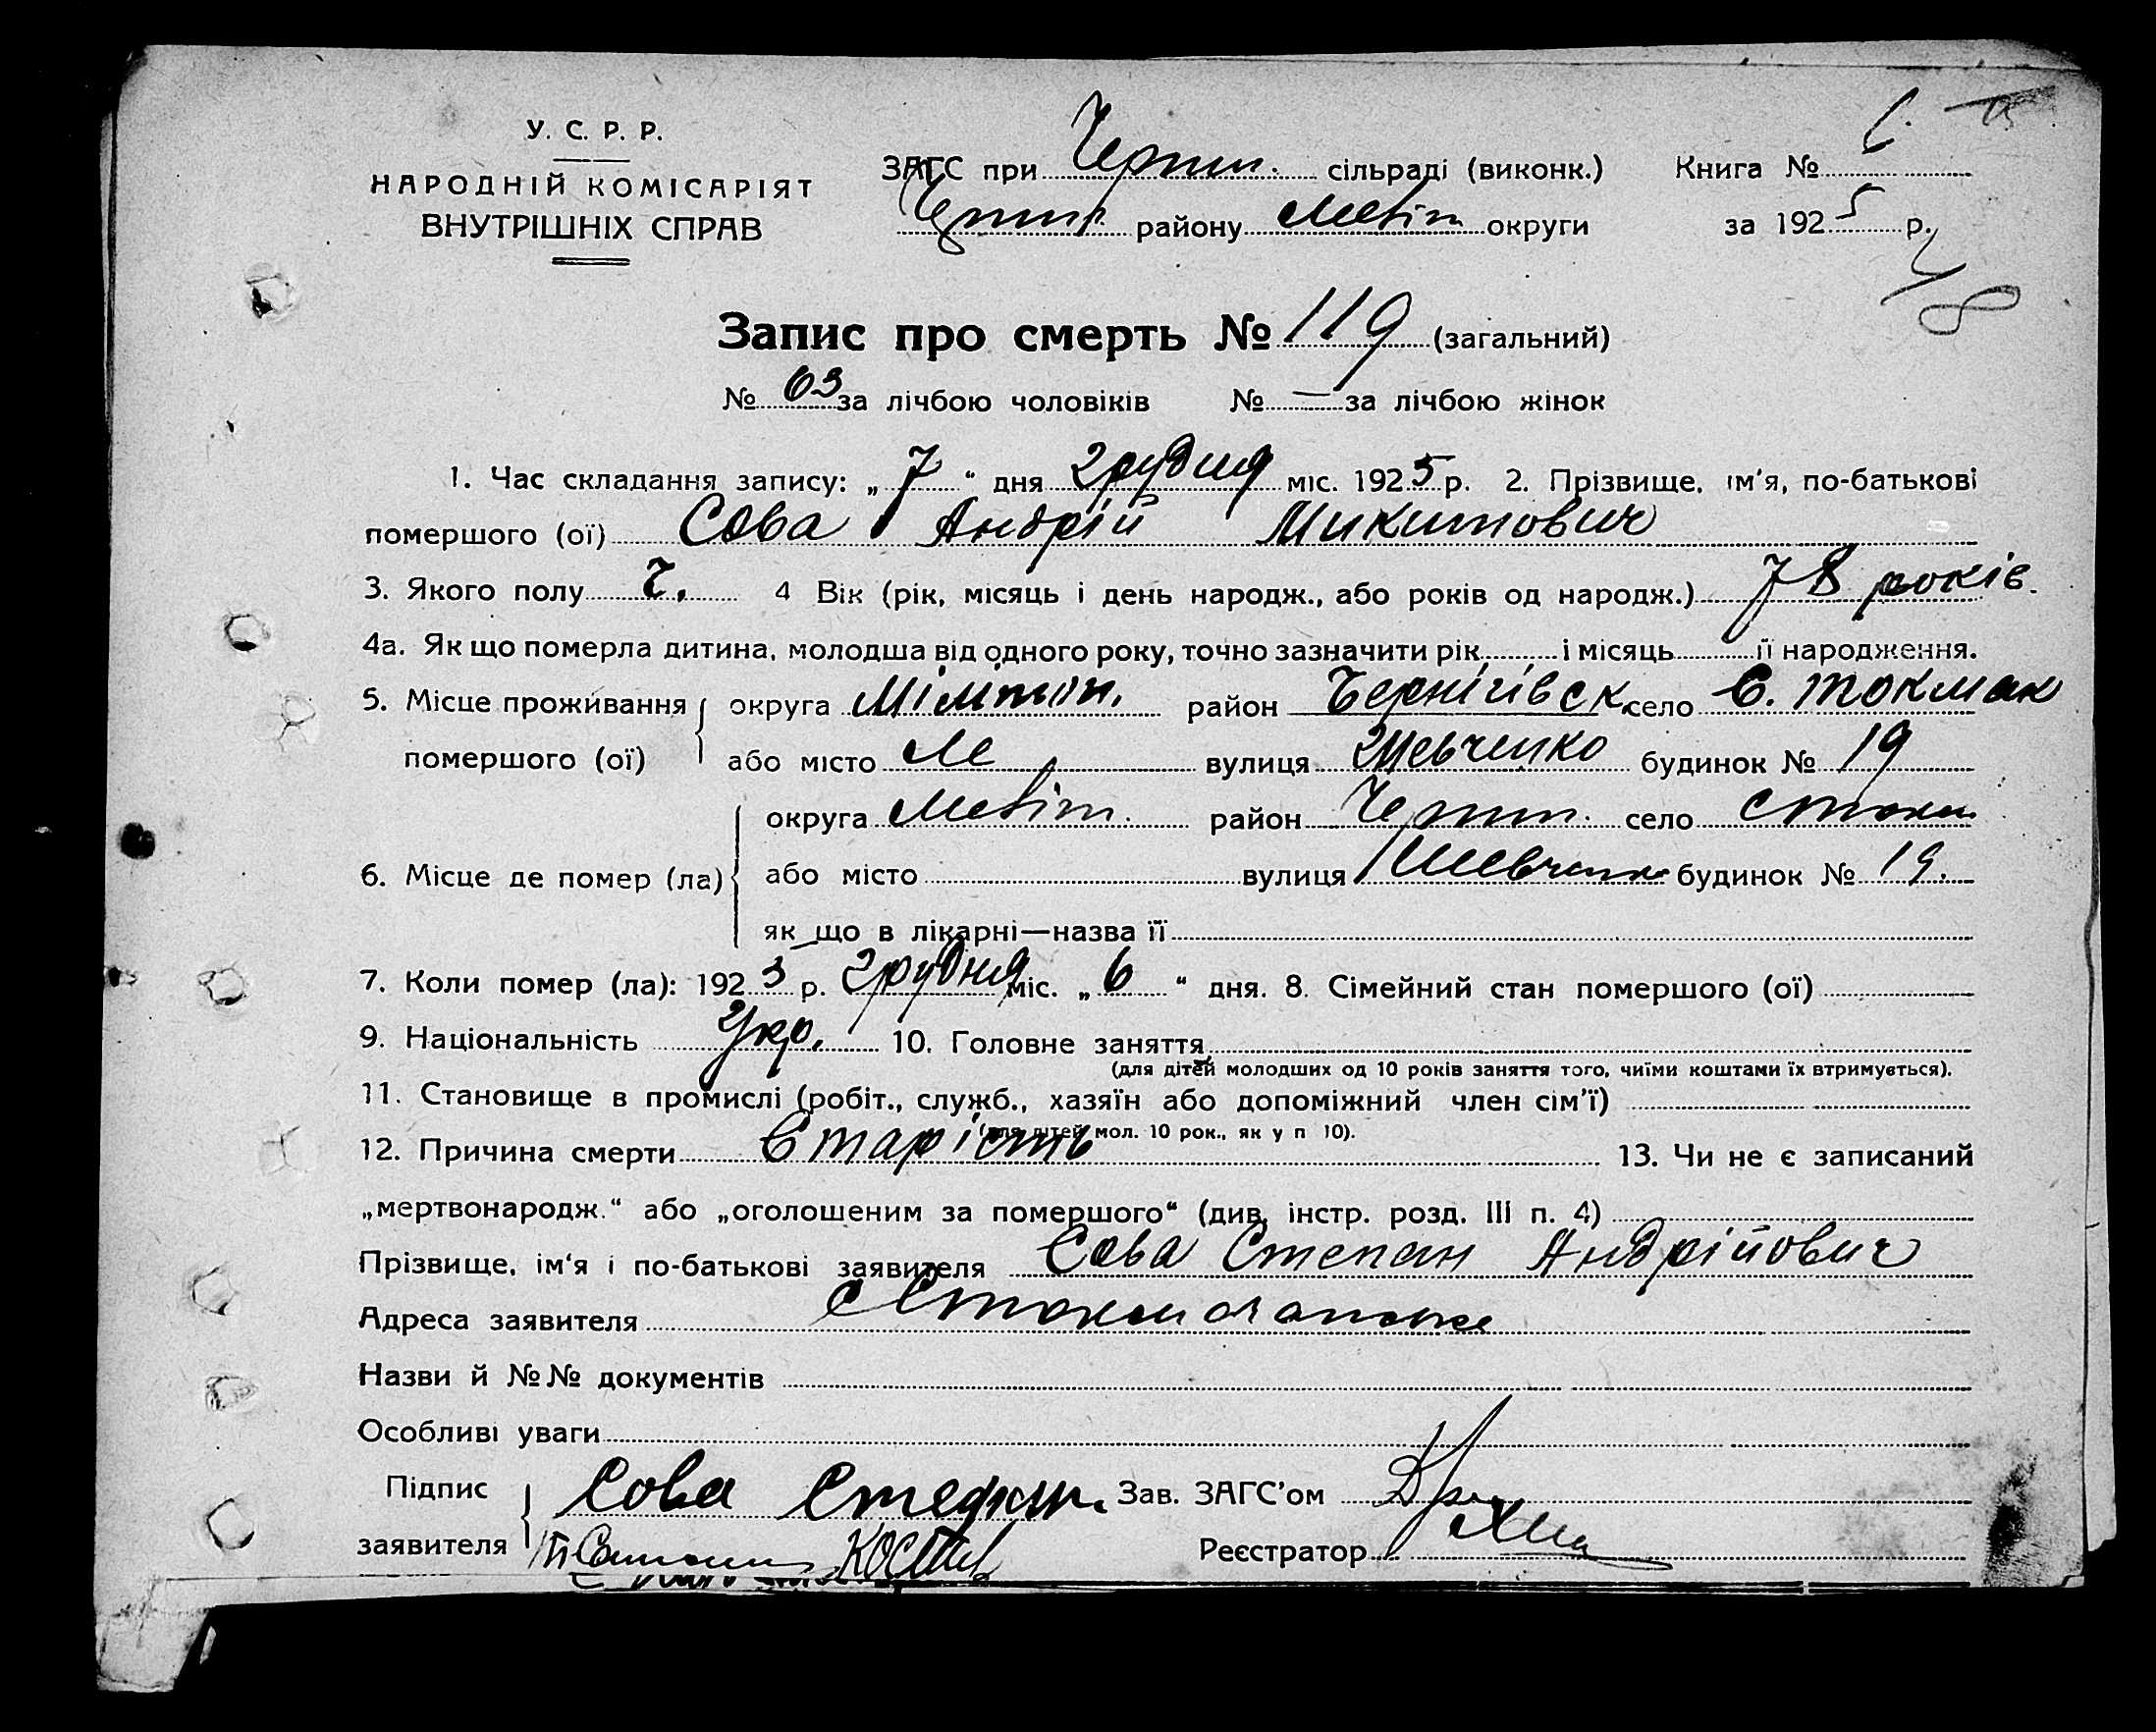 У. С. Р. Р.
НАРОДНІЙ КОМІСАРІЯТ
ВНУТРІШНІХ СПРАВ
ЗАГС при сільраді (виконк.) Книга № 6.
району округи за 1925 р.
48
Запис про смерть № 119 (загальний)
№ 63 за лічбою чоловіків № — за лічбою жінок
1. Час складання запису: „7“ дня грудня міс. 1925 р. 2. Прізвище, ім'я, по-батькові
помершого (ої) Сова Андрій Микитович
3. Якого полу ч. 4 Вік (рік, місяць і день народж., або років од народж.) 78 років.
4а. Як що померла дитина, молодша від одного року, точно зазначити рік і місяць її народження.
5. Місце проживання округа район Чернігівск село С. Токмак
помершого (ої) або місто вулиця Шевченко будинок № 19
округа район село
6. Місце де помер (ла) або місто вулиця Шевченко будинок № 19.
як що в лікарні—назва її
7. Коли помер (ла): 1925 р. грудня міс. „6“ дня. 8. Сімейний стан помершого (ої)
9. Національність Укр. 10. Головне заняття
(для дітей молодших од 10 років заняття того, чиїми коштами їх втримується).
11. Становище в промислі (робіт., служб., хазяїн або допоміжний член сім'ї)
(для дітей мол. 10 рок., як у п 10).
12. Причина смерти Старість 13. Чи не є записаний
„мертвонародж.“ або „оголошеним за помершого“ (див. інстр. розд. III п. 4)
Прізвище, ім'я і по-батькові заявителя Сова Степан Андрійович
Адреса заявителя
Назви й №№ документів
Особливі уваги
Підпис Сова Зав. ЗАГС'ом
заявителя Реєстратор